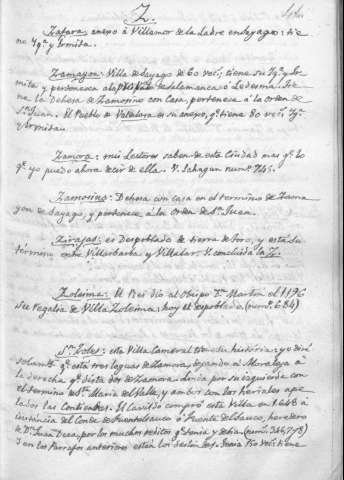 Z.
Zafara: anexo á Villamor de la Ladre en Sayago: tie-
ne Yg.ª y Ermita.
Zamayon: Villa de Sayago de 60 vec.s; tiene su Yg.ª y Er-
mita y pertenecen á la de Salamanca ó Ledesma. Tie-
ne la Dehesa de Zamorino con Casa, pertenece á la orden de
S.n Juan. El Pueblo de es su anexo, q.e tiene 80 vec.s Yg.ª
y Ermitas.
Zamora: mis Lectores saben de esta Ciudad mas q.e lo
q.e yo puedo ahora decir de ella. V. Sahagun num.º 745.
Zamorino: Dehesa con casa en el termino de Zama-
yon de Sayago, y pertenece á la Orden de S.n Juan.
Zirajas: es Despoblado de tierra de Toro, y está su
termino entre Villarbarba y Villalar. V. concluida la Z.
Zoleima: El Rei dio al Obispo D.n Martin el 1196
su Regalia de Villa Zoleima: hoy es despoblado (num.º 684)
S.n Zoles: esta Villa Cameral tiene su historia: yo diré
solam.te q.e está tres leguas de Zamora, dejando el Moraleja á
la derecha q.e dista dos de Zamora, linda por su izquierda con
el termino de S.ta Maria del Valle, y ambos con los heriales ape-
lados las Contiendas. El Cavildo compró esta Villa en 1648 á
instancia del Conde de Fuentesauco ó Fuente del Sauco, heredero
de D.n Juan Deza, por los muchos reditos q.e tenia y debia (num.s 366, 778)
y en los Parrafos anteriores están los